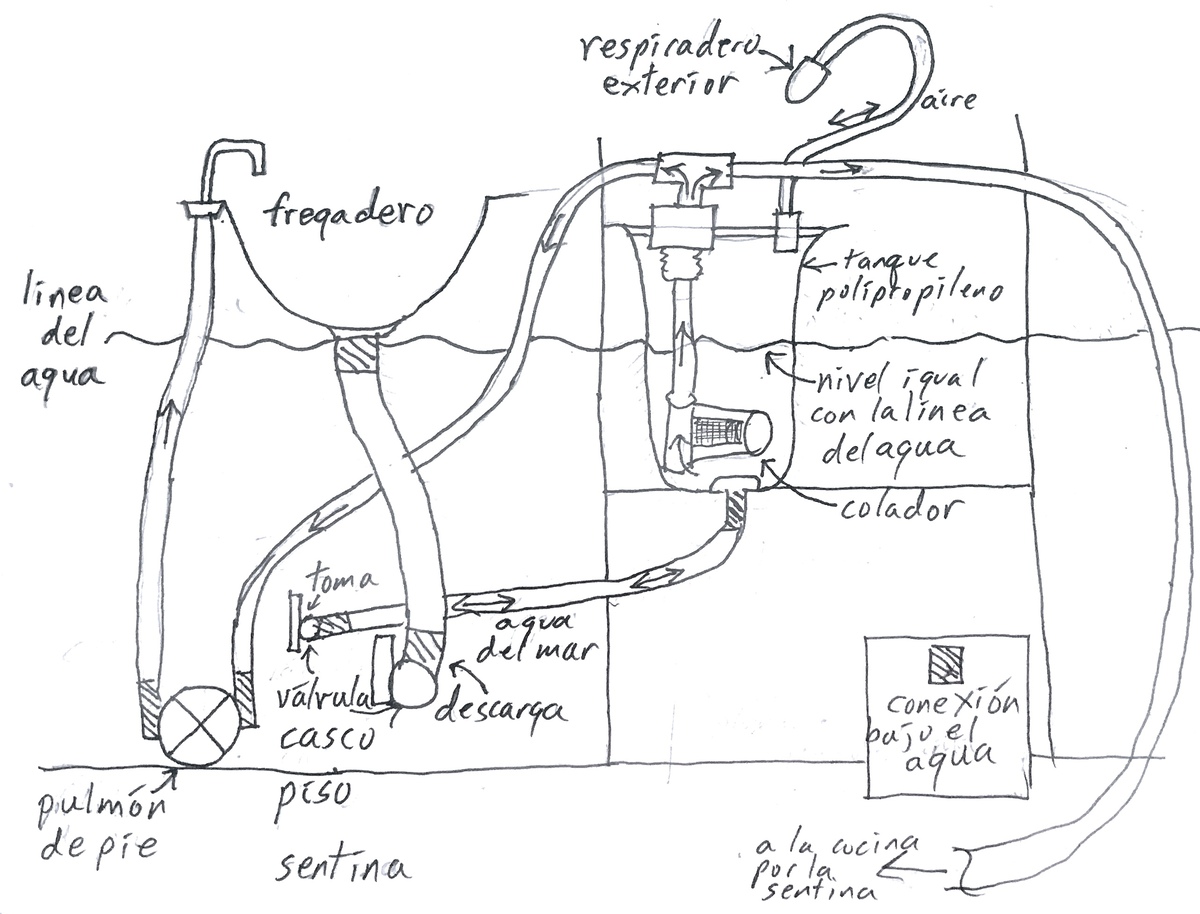 respiradero
exterior
aire
fregadero
linea
del
agua
tanque
polipropileno
nivel igual
con la línea
del agua
colador
toma
agua
del mar
válvula
casco
descarga
conexión
bajo el
agua
pulmón
de pie
piso
sentina
a la cucina
por la
sentina